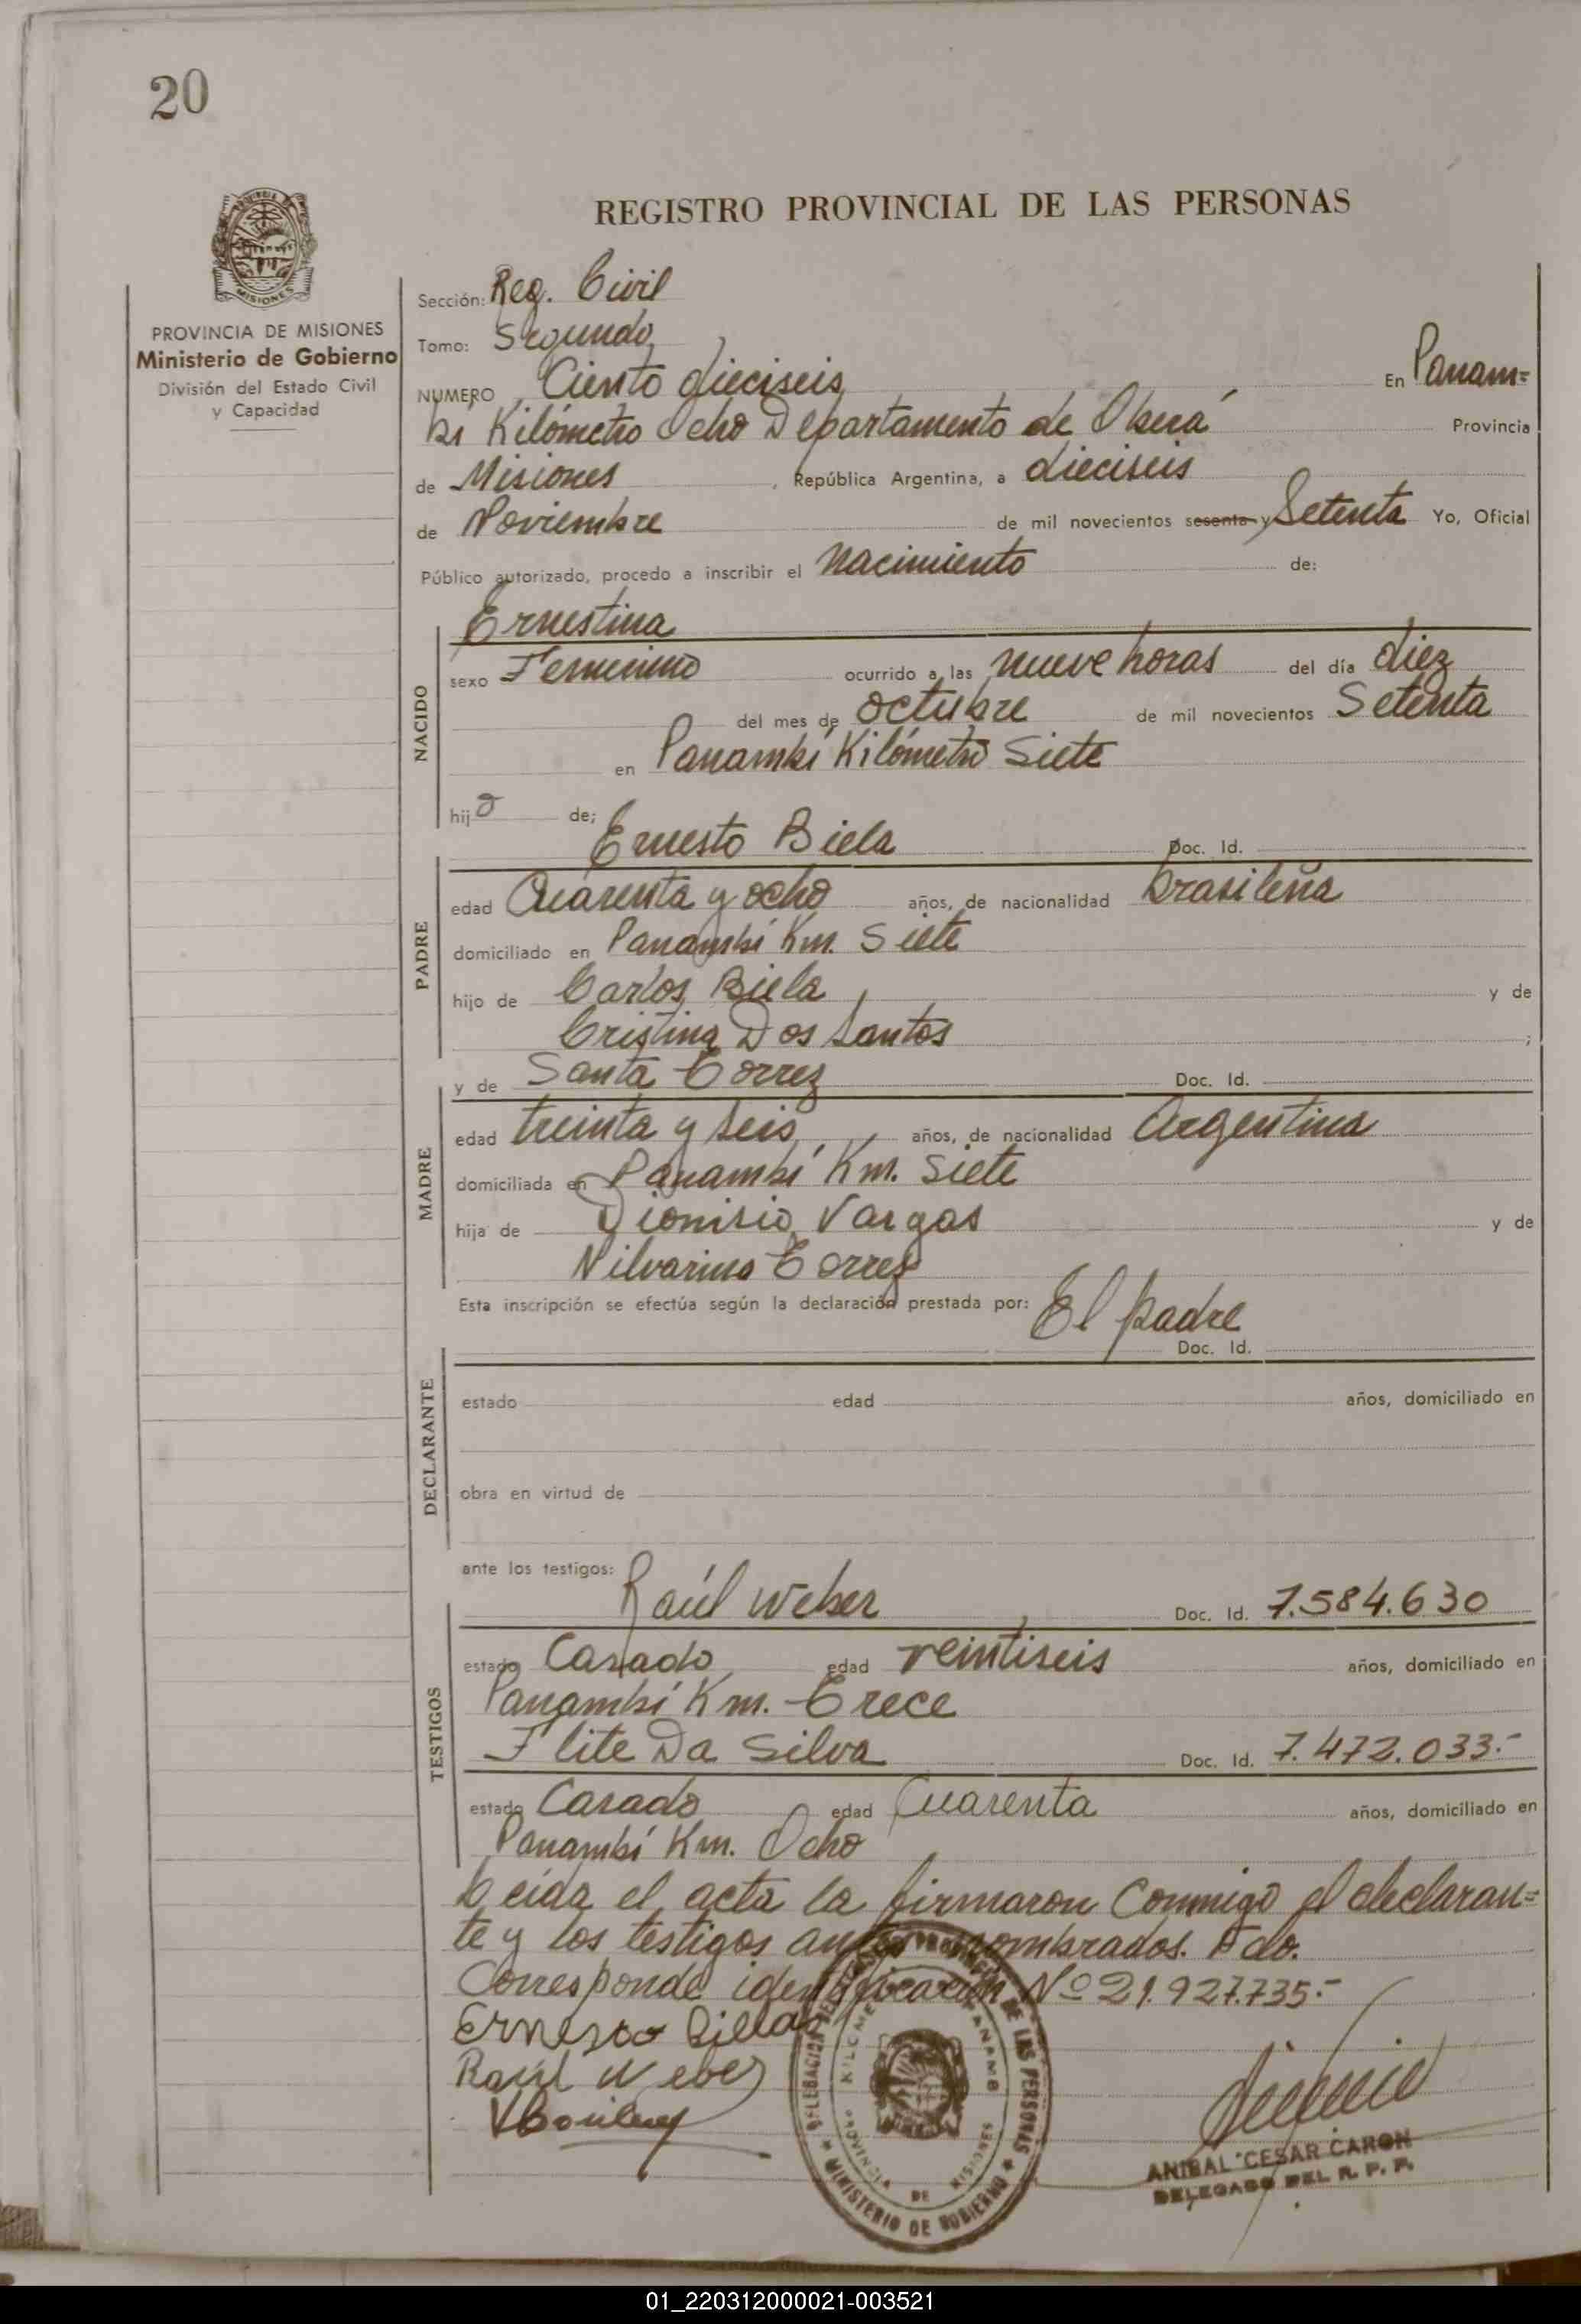 20
REGISTRO PROVINCIAL DE LAS PERSONAS
MISIONES
PROVINCIA DE MISIONES
Ministerio de Gobierno
División del Estado Civil
y Capacidad
Sección: Reg. Civil
Tomo: Segundo
NUMERO Ciento dieciseis En Panam=
bí Kilómetro Ocho Departamento de Oberá Provincia
de Misiones, República Argentina, a dieciseis
de Noviembre de mil novecientos sesenta y Setenta Yo, Oficial
Público autorizado, procedo a inscribir el Nacimiento de:
Ernestina
NACIDO
sexo Femenino ocurrido a las nueve horas del día diez
del mes de octubre de mil novecientos Setenta
en Panambí Kilómetro Siete
hija de;
Ernesto Biela Doc. Id.
PADRE
edad Cuarenta y ocho años, de nacionalidad brasileña
domiciliado en Panambí Km. Siete
hijo de Carlos Biela y de
Cristina Dos Santos ;
y de Santa Torrez Doc. Id.
MADRE
edad treinta y seis años, de nacionalidad Argentina
domiciliada en Panambí Km. Siete
hija de Dionisio Vargas y de
Nilvarina Torrez
Esta inscripción se efectúa según la declaración prestada por: El padre
Doc. Id.
DECLARANTE
estado edad años, domiciliado en
obra en virtud de
ante los testigos:
Raúl Weber Doc. Id. 7.584.630
TESTIGOS
estado Casado edad veintiseis años, domiciliado en
Panambí Km. Trece
Flite Da Silva Doc. Id. 7.472.033.-
estado Casado edad Cuarenta años, domiciliado en
Panambí Km. Ocho
Leída el acta la firmaron Conmigo el declaran=
te y los testigos antes nombrados. Fdo.
Corresponde identificación Nº 21.927.735.-
Ernesto Billa
Raúl Weber
DELEGACION DE LAS PERSONAS
MINISTERIO DE GOBIERNO
PROVINCIA DE MISIONES
ANIBAL CESAR CARON
DELEGADO DEL R. P. P.
01_220312000021-003521